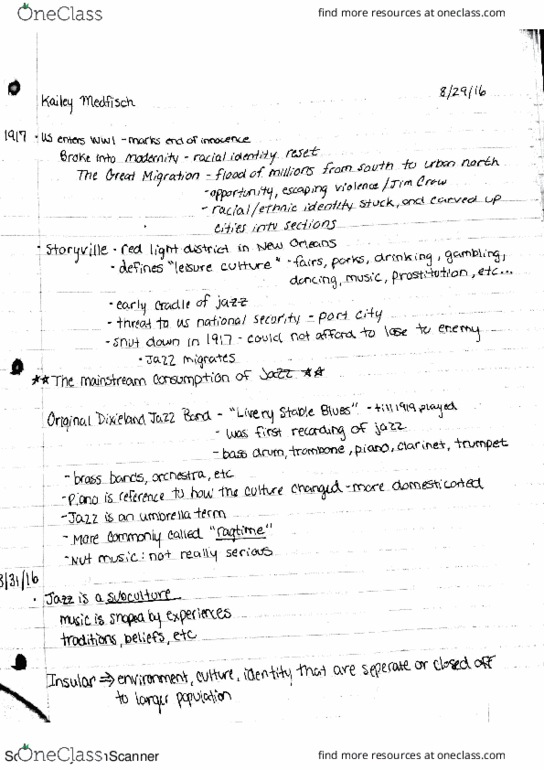 OneClass
find more resources at oneclass.com
8/29/16
Kailey Medfisch
1917 • US enters WWI - marks end of innocence
Broke into modernity - racial identity reset
The Great Migration - flood of millions from south to urban north
- opportunity, escaping violence/Jim Crow
- racial/ethnic identity stuck, and carved up
cities into sections
• Storyville - red light district in New Orleans
- defines "leisure culture" - fairs, parks, drinking, gambling,
dancing, music, prostitution, etc...
- early cradle of jazz
- threat to US national security - port city
- shut down in 1917 - could not afford to lose to enemy
• Jazz migrates
★★ The mainstream consumption of Jazz ★★
Original Dixieland Jazz Band - "Livery Stable Blues" - till 1919 played
- was first recording of jazz
- bass drum, trombone, piano, clarinet, trumpet
- brass bands, orchestra, etc
- Piano is reference to how the culture changed - more domesticated
- Jazz is an umbrella term
- More commonly called "ragtime"
- Nut music: not really serious
8/31/16
• Jazz is a subculture
music is shaped by experiences
traditions, beliefs, etc
Insular ⇒ environment, culture, identity that are seperate or closed off
to larger population
OneClass
Scanner
find more resources at oneclass.com